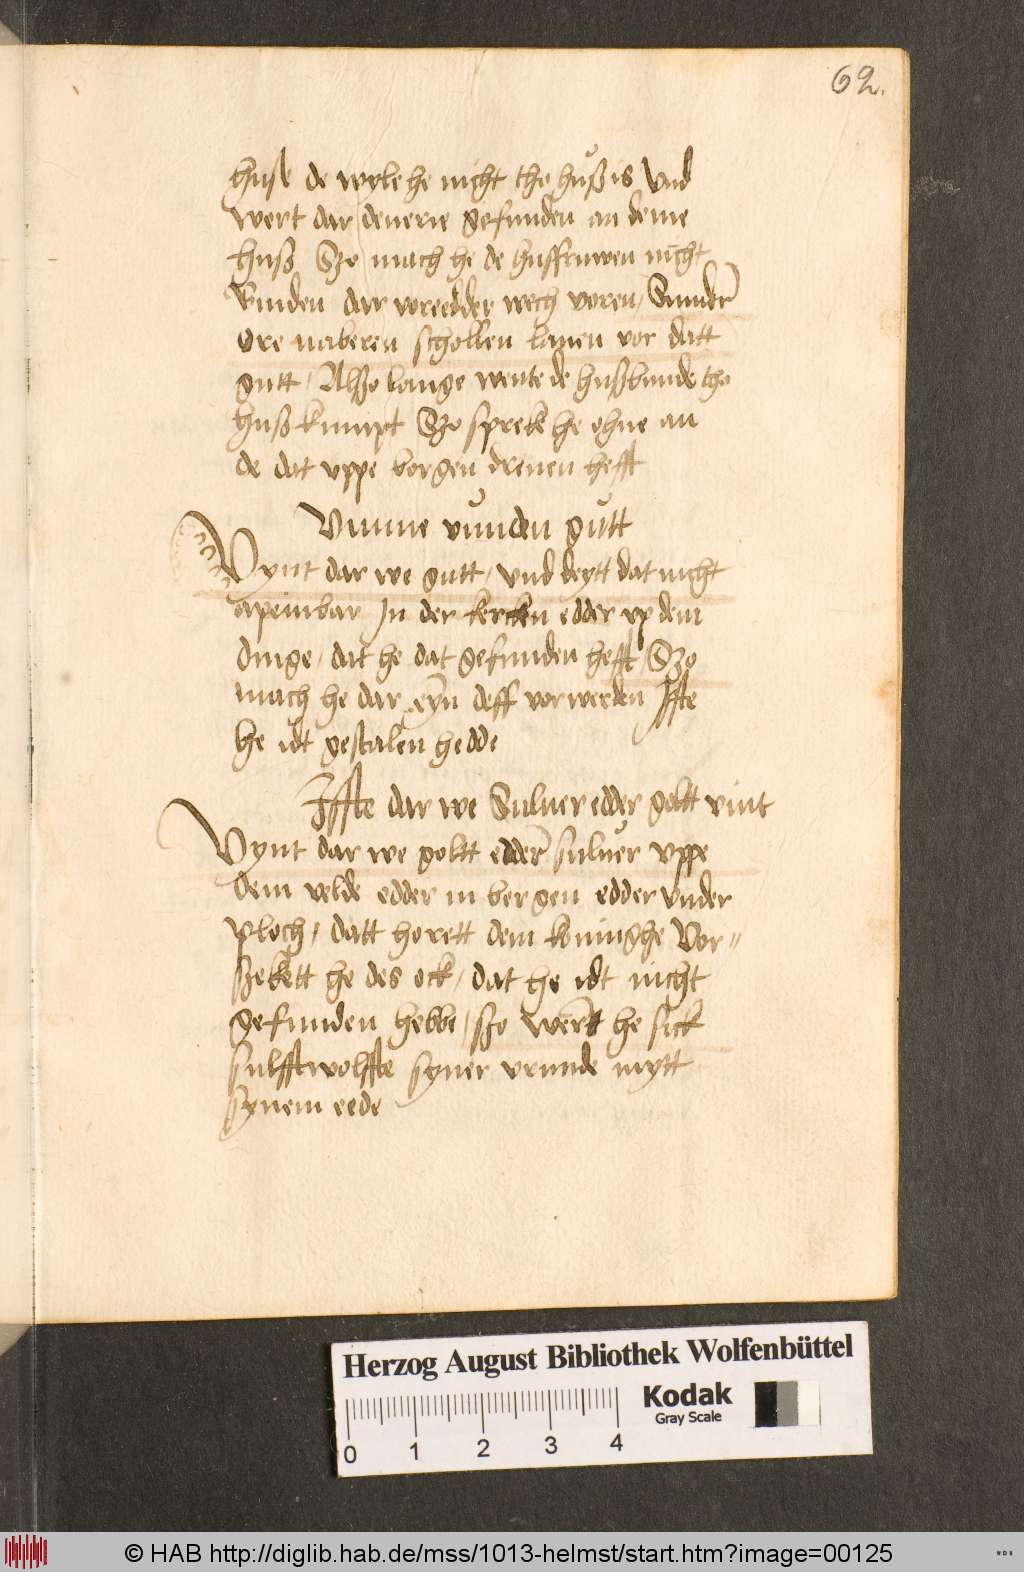 62.
huse de wyle he nicht tho huß is Vnd
wert dar deuerie gefunden an deme
huß Szo mach he de husfruwen nicht
binden dar vore edder wech voren, Sunder
Ore naberen schollen lauen vor datt
gutt, Alszo lange wente de hußbunde tho
huß kumpt Szo spreke he ohne an
de dat vppe borgen dreuen hefft
Vmme vunden gutt
Vynt dar we gutt, vnd deytt dat nicht
apembar In der kercken edder vp dem
dinge, dat he dat gefunden hefft, Szo
mach he dar eyn deff vor werden Iffte
he idt gestalen hedde
Iffte dar we Suluer edder golt vint
Vynt dar we goltt edder suluer vppe
dem velde edder in bergen edder vnder
ploch, datt horett dem koninghe Vor=
szekett he des ock, dat he idt nicht
gefunden hebbe, szo were he sick
sulfftwolffte syner vrunde mytt
synem eede
Herzog August Bibliothek Wolfenbüttel
Kodak
Gray Scale
0 1 2 3 4
© HAB http://diglib.hab.de/mss/1013-helmst/start.htm?image=00125